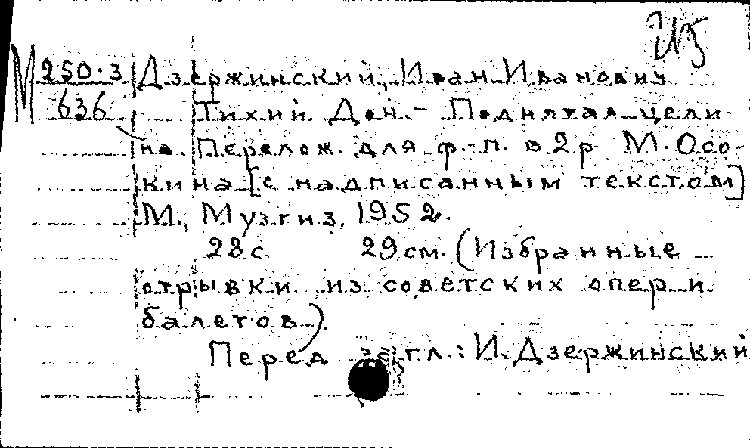 М 250-3 Дзержинский, Иван Иванович
636 Тихий Дон.- Поднятая цели
на. Перелож. для ф.-п. в 2 р М. Осо-
кина [с надписанным текстом]
М., Музгиз, 1952.
28 с 29 см. (Избранные
отрывки из советских опер и
балетов).
Перед загл.: И. Дзержинский